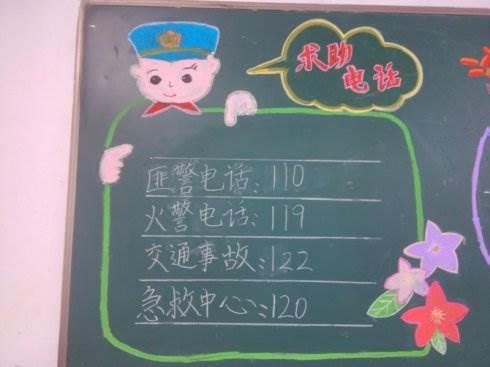 求助
电话
匪警电话:110
火警电话:119
交通事故:122
急救中心:120